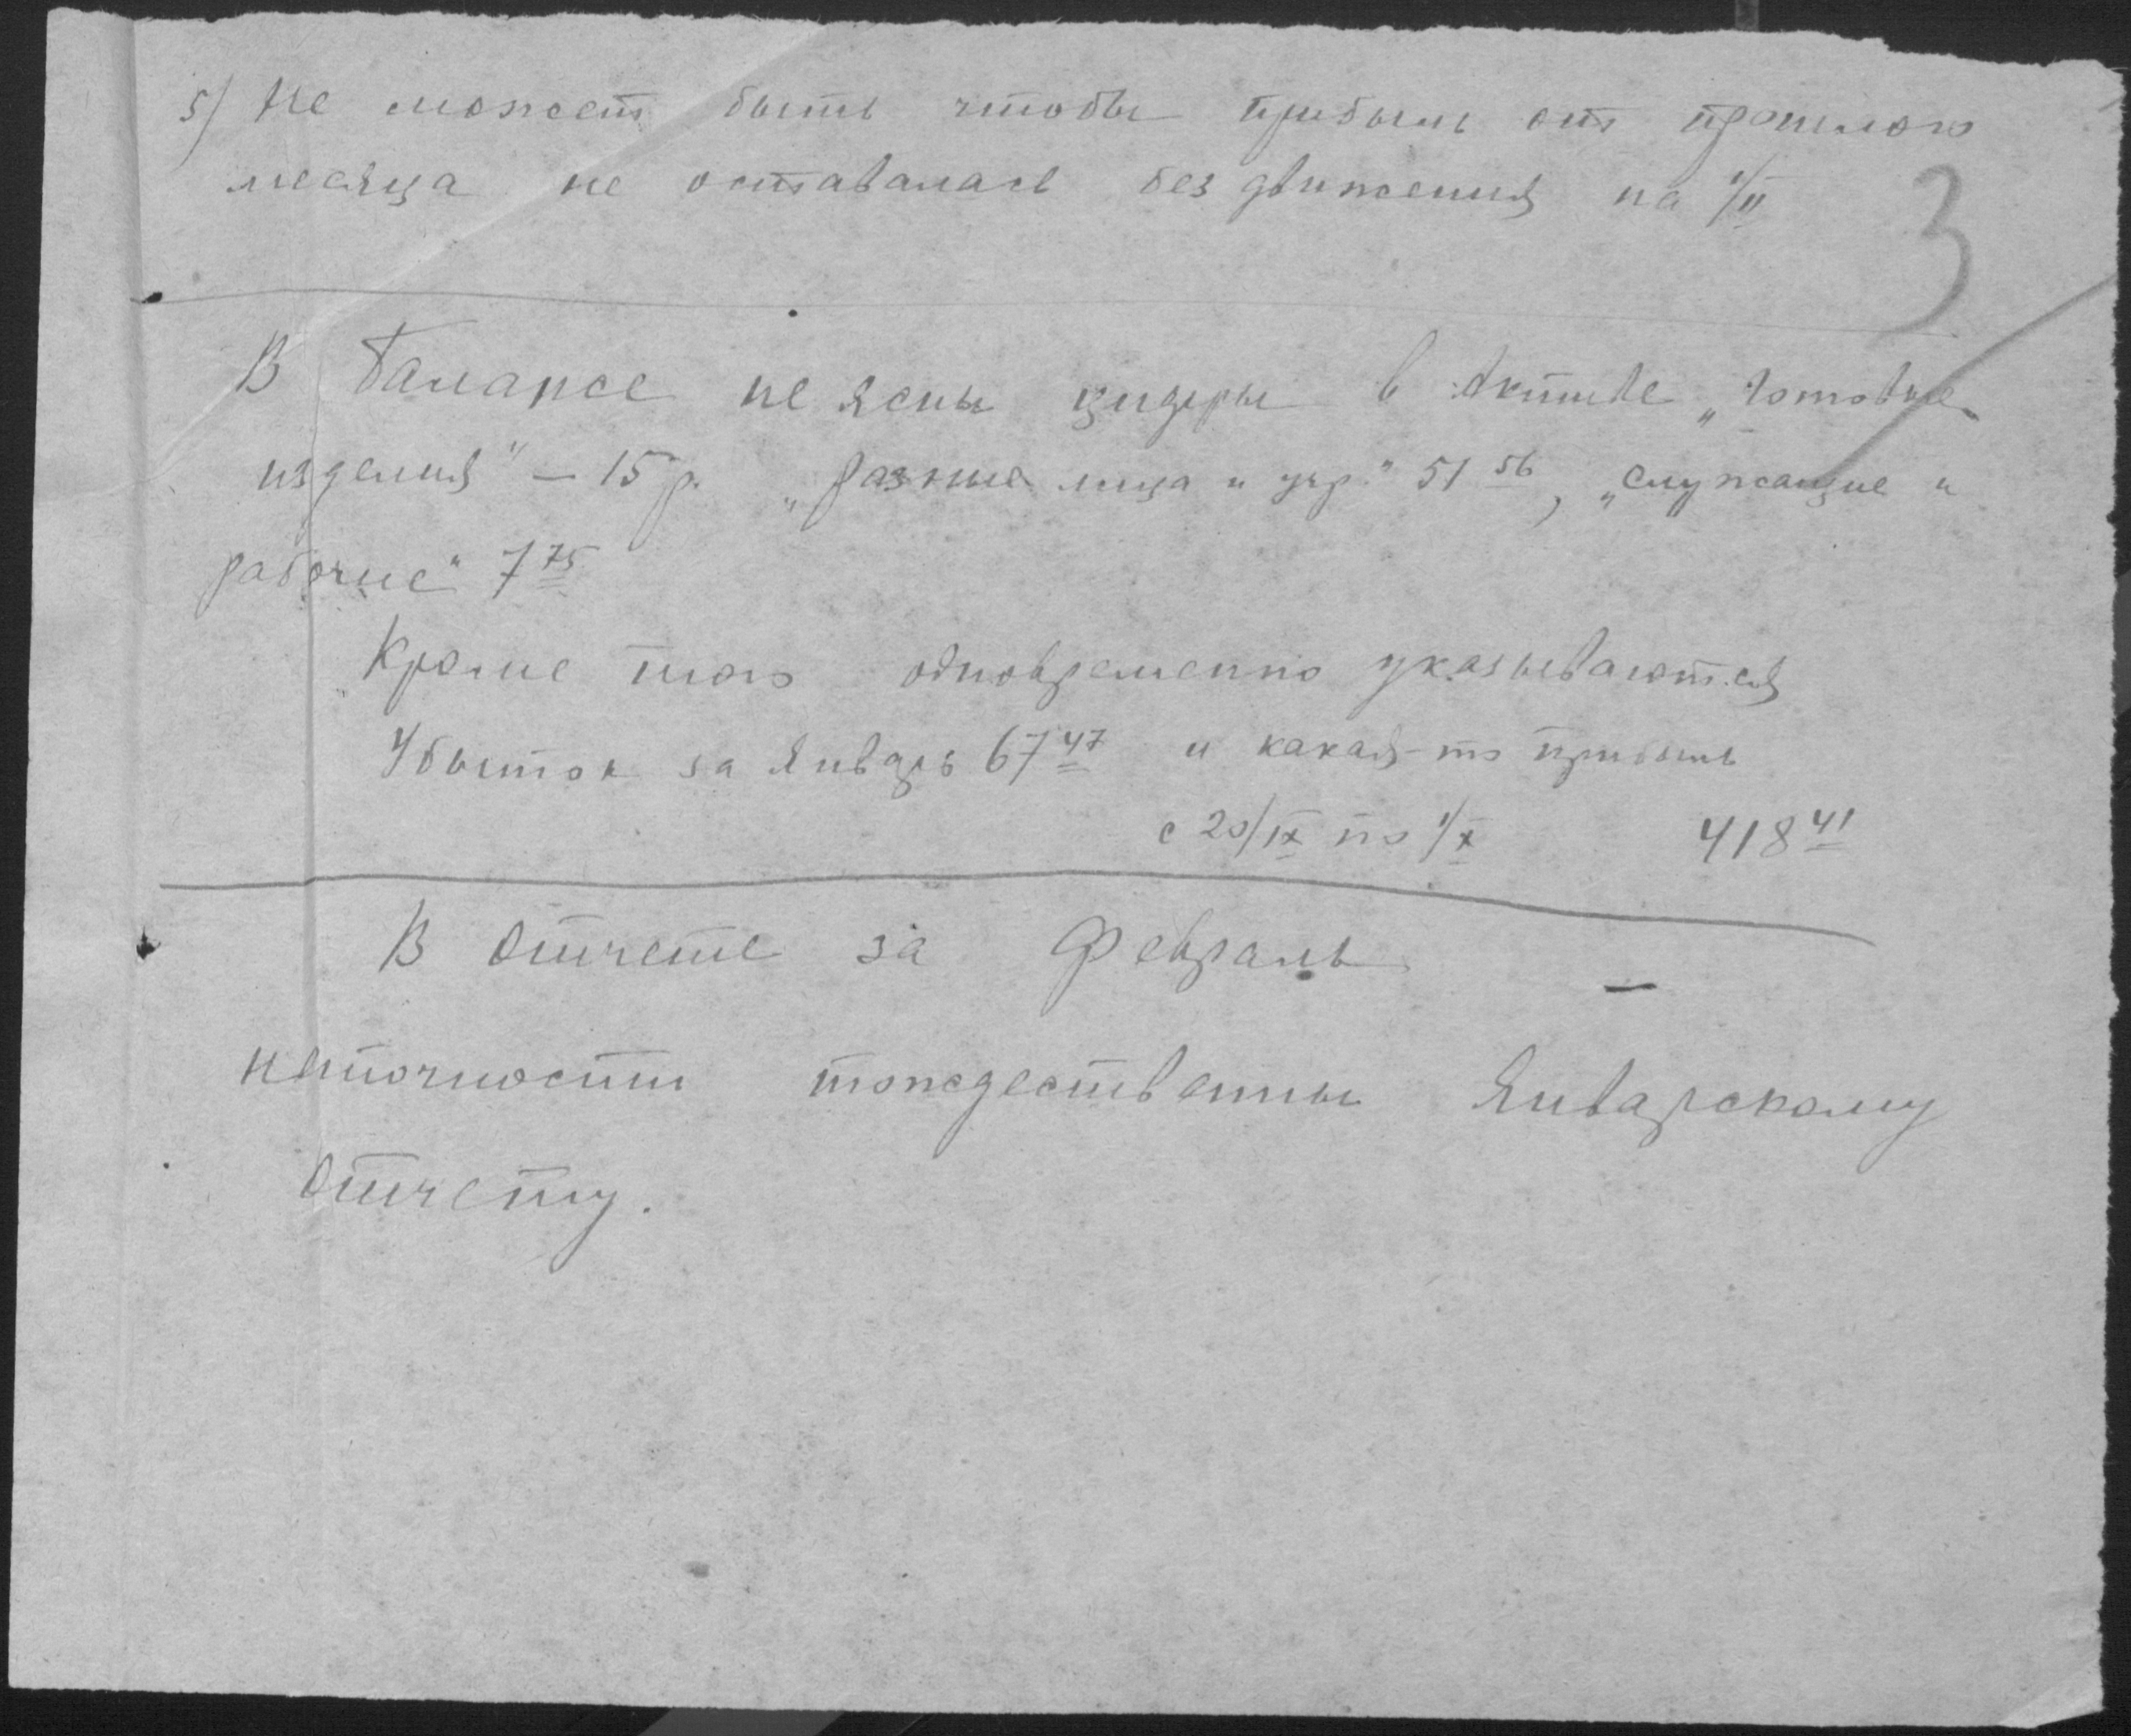 5) Не может быть чтобы прибыль от прошлого
месяца не оставалась без движения на 1/II
3
В Балансе не ясны цифры в Активе „Готовые
изделия" — 15 р. „Разные лица и учр." 51 56, „Служащие и
рабочие" 7 75
Кроме того одновременно указываются
Убыток за Январь 67 47 и какая-то прибыль
с 20/IX по 1/X 418 41
В отчете за Февраль —
неточности тождественны Январскому
отчету.